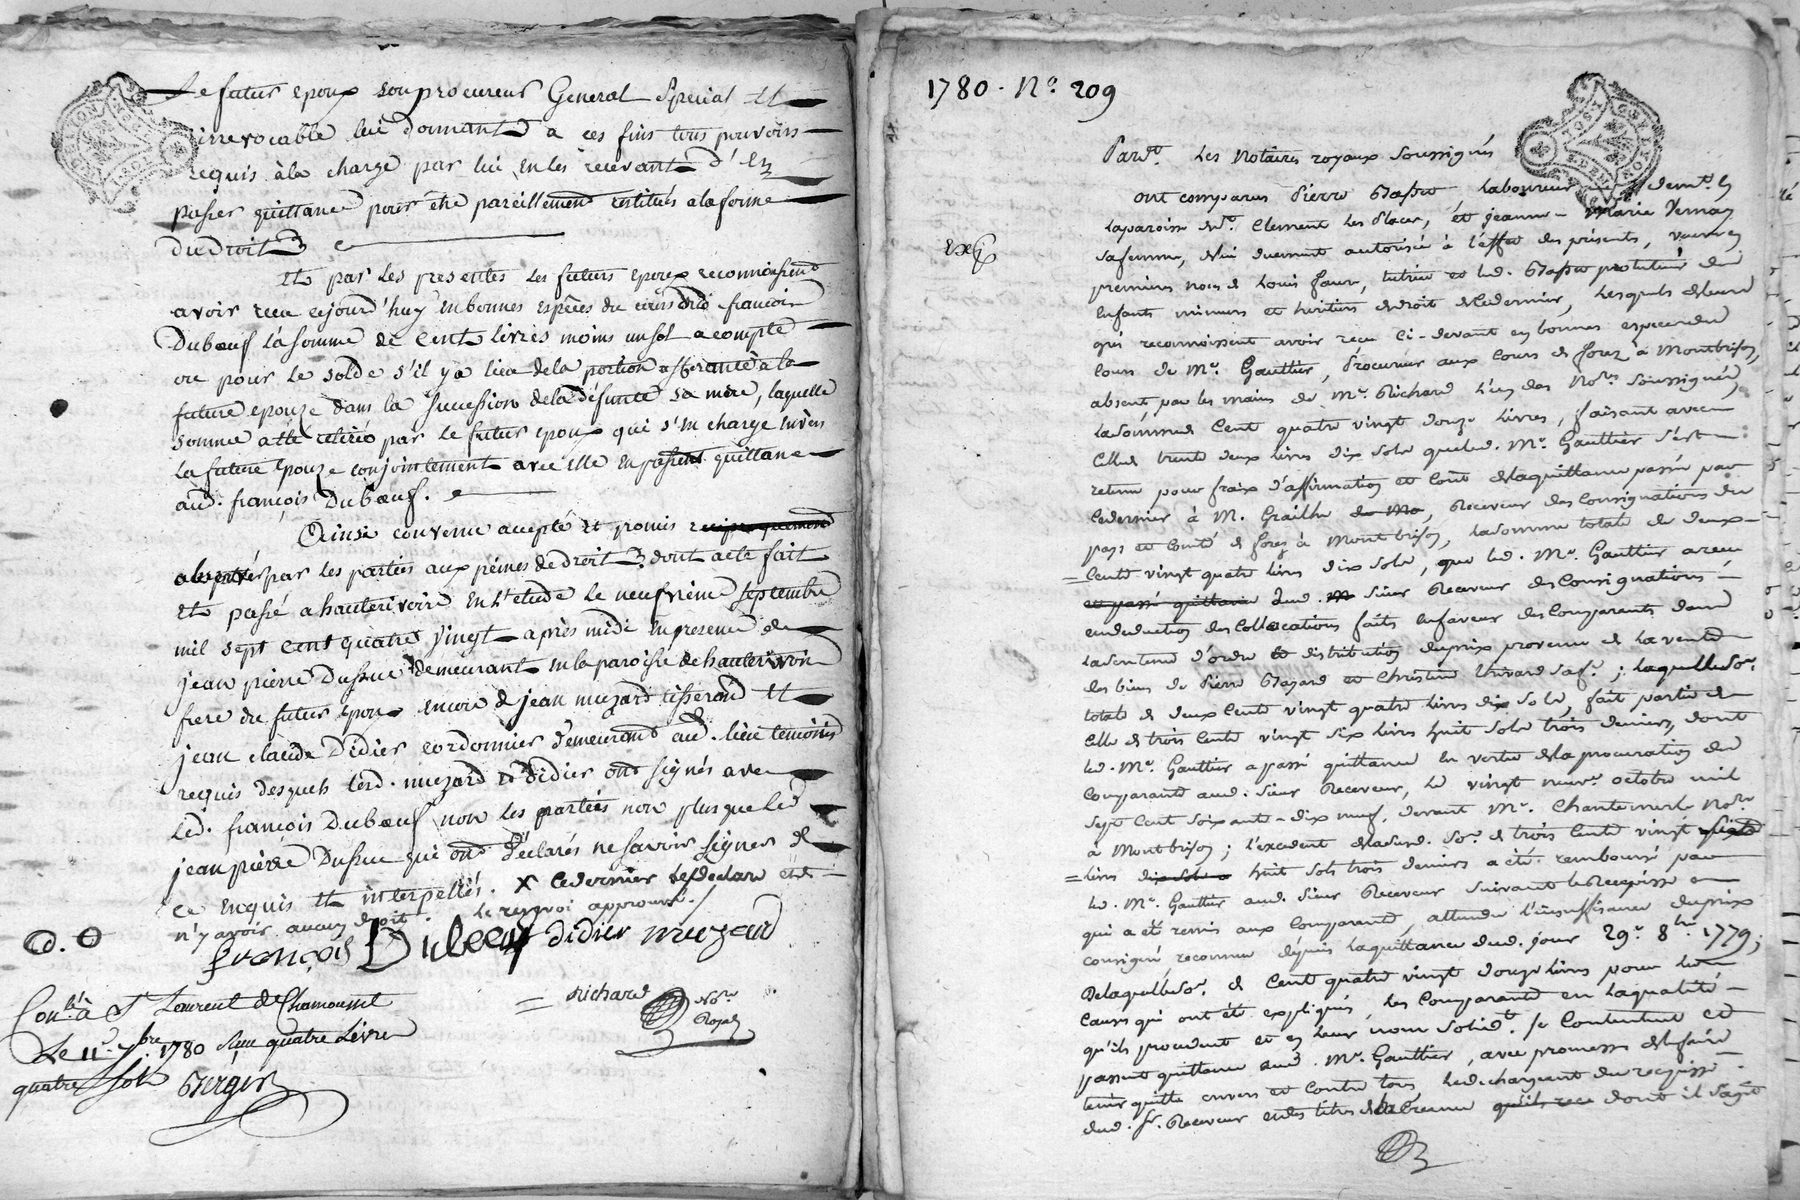 Le futur epoux son procureur General Special et
irrevocable lui donnant a ces fins tous pouvoirs
requis à la charge par lui en les recevant d'En
passer quittance pour être pareillement restitués a la forme
du droit
Et par les presentes les futurs epoux reconnoissent
avoir reçu cejourd'huy en bonnes espèces du susd françois
Dubœuf la somme de Cent livres moins un sol a compte
ou pour le solde s'il y a lieu de la portion afferante à la
future epouze dans la succession de la défunte sa mere, laquelle
somme a été retirée par le futur epoux qui s'en charge envers
la future epouze conjointement avec elle en passent quittance
aud. françois Dubœuf.
Ainsi convenu accepté et promis reciproquement
par les parties aux peines de droit, dont acte fait
Et passé a hauterivoire en l'etude le neufvième septembre
mil sept cent quatre vingt après midi en presence de
jean pierre Dussuc demeurant en la paroisse de hauterivoire
frere du futur epoux encore de jean muzard tisserand et
jean claude Didier cordonnier demeurant aud. lieu temoins
requis desquels lesd. muzard et didier ont signés avec
led. françois Dubœuf, non les parties non plus que led
jean pierre Dussuc qui ont déclarés ne savoir signer de
ce enquis et interpellés. X ce dernier
n'y avoir aucun droit. le renvoi approuvé.
françois Dubœuf didier muzard
Richard Nore
Royal
Conlé à St Laurent de Chamousset
Le 11e 7bre 1780 Reçu quatre Livres
quatre sols Berger
1780. No. 209
Pardt. Les Notaires royaux soussignés
ont comparus Pierre laboureur demt. en
la paroisse de St. Clement les Places, et jeanne Marie Vernay
sa femme, de lui duement autorisée à l'effet des présentes, veuve en
premieres noces de Louis faure, tutrice et led. protuteur des
enfants mineurs et heritiers de droit de ce dernier, lesquels de leur
gré reconnoissent avoir reçu ci-devant en bonnes especes du
cours de Me. Gauthier, Procureur aux Cours de forez à Montbrison,
absent, par les mains de Me. Richard l'un des Nores. soussignés,
la somme de Cent quatre vingt douze livres, faisant avec
Celle de trente deux livres dix sols que led. Me. Gauthier s'est
retenu pour fraix d'affirmation et coût de la quittance passée par
ce dernier à M. Grailhe de Mo, Receveur des Consignations du
pays et Comté de forez à Montbrison, la somme totale de deux
Cents vingt quatre livres dix sols, que led. Me. Gauthier a reçu
et passé quittance dud. sieur Receveur des Consignations
en deduction des Collocations faites en faveur des Comparants dans
la sentence d'ordre et distribution du prix provenu de la vente
des biens de Pierre Bazard et Christine sa fe. ; laquelle so.
totale de deux Cents vingt quatre livres dix sols, fait partie de
Celle de trois Cents vingt six livres huit sols trois deniers, dont
led. Me. Gauthier a passé quittance en vertu de la procuration des
Comparants aud. sieur Receveur, le vingt neuf octobre mil
sept Cent soixante-dix neuf, devant Me. Chantemerle Nore.
à Montbrison ; l'excedent de lad. so. de trois Cents vingt six
livres dix sols huit sols trois deniers a été remboursé par
led. Me. Gauthier aud. sieur Receveur suivant le Recepissé
qui a été remis aux Comparants, attendu l'insuffisance du prix
consigné reconnue depuis la quittance dud. jour 29e. 8bre 1779 ;
De laquelle so. de Cent quatre vingt douze livres pour les
causes qui ont été expliquées, les Comparants en la qualité
qu'ils procedent et en leur nom solidt. se Contentent et
passent quittance aud. Me. Gauthier, avec promesse de le faire
tenir quitte envers et Contre tous, le dechargeant du recepissé
dud. sr. Receveur et des titres de Creance qu'ils dont il s'agit